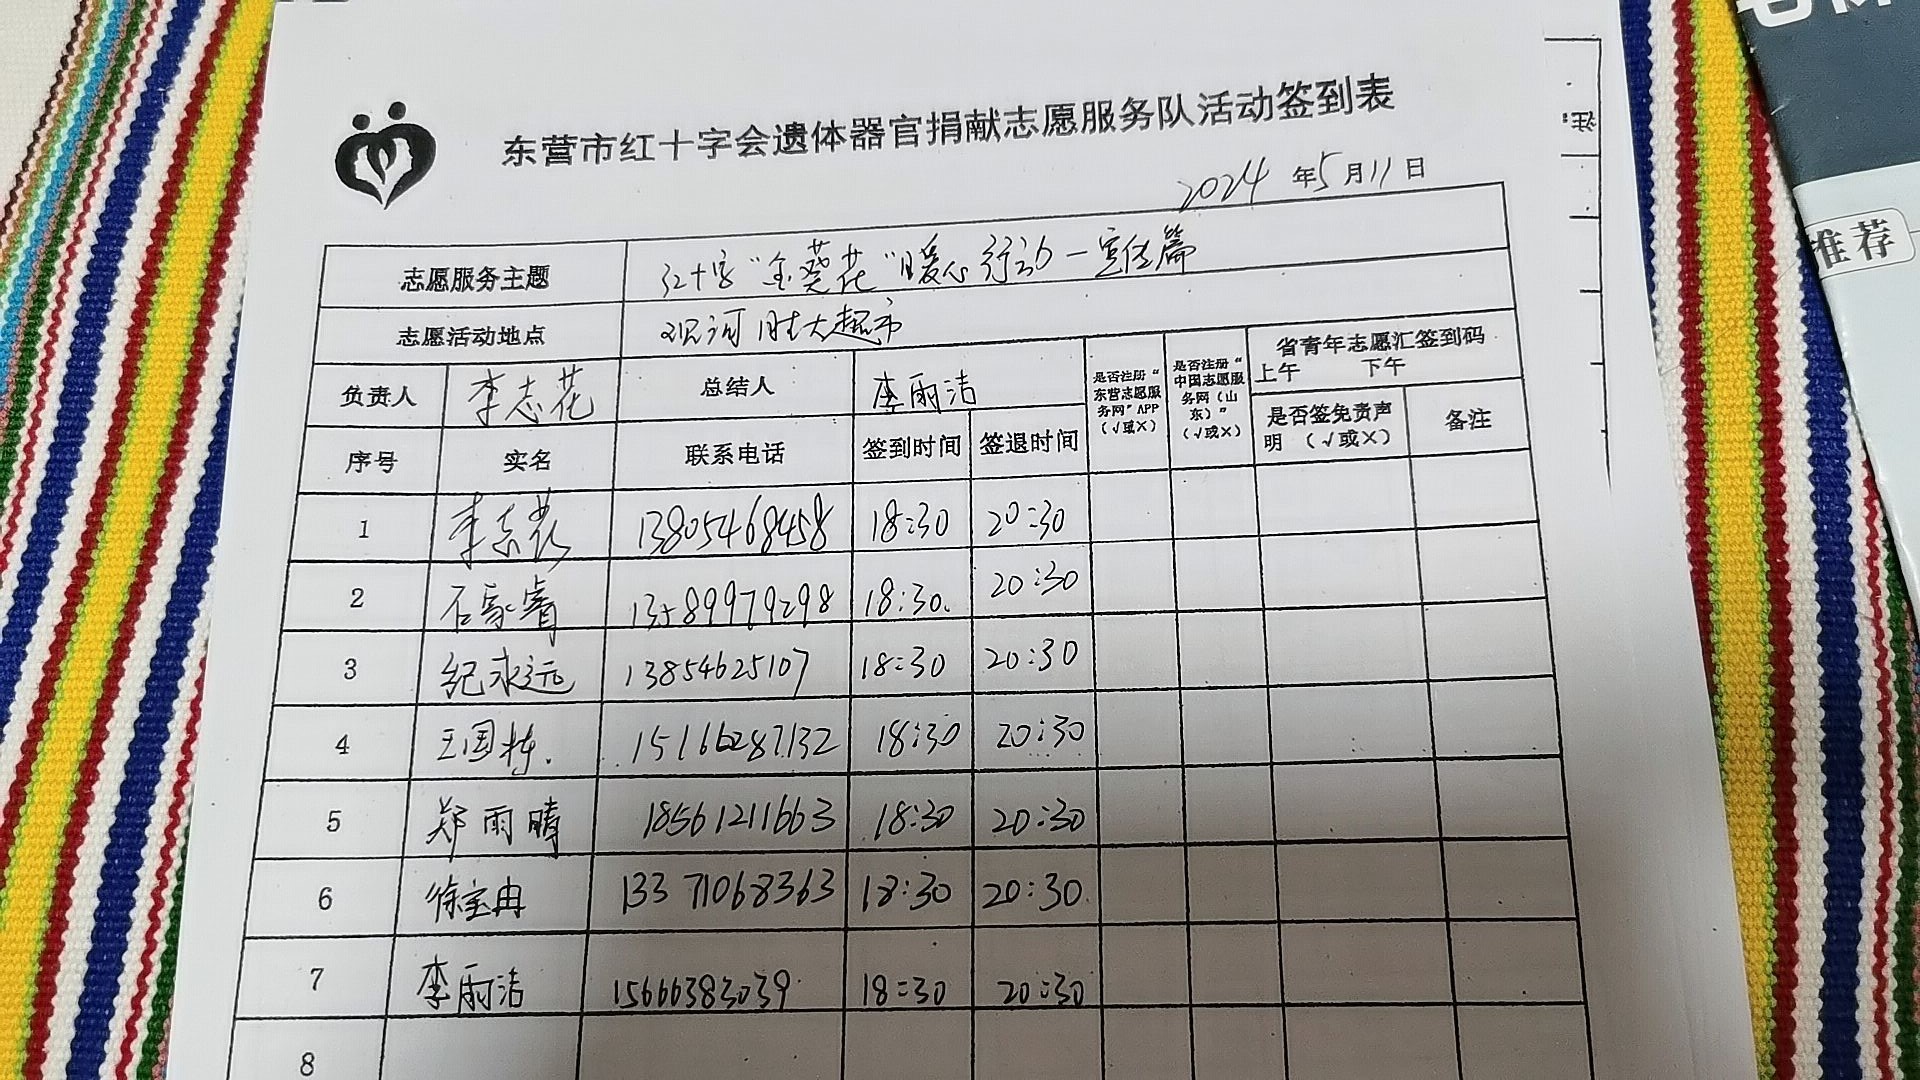 东营市红十字会遗体器官捐献志愿服务队活动签到表
2024 年 5 月 11 日
志愿服务主题 红十字“金葵花”暖心行动一宣传篇
志愿活动地点 观河胜大超市
负责人 李志花 总结人 李雨洁 是否注册“东营志愿服务网”APP（√或×） 是否注册“中国志愿服务网（山东）”（√或×） 省青年志愿汇签到码 上午 下午
序号 实名 联系电话 签到时间 签退时间 是否签免责声明（√或×） 备注
1 李志花 13805468458 18:30 20:30
2 石家睿 13589979298 18:30 20:30
3 纪永远 13854625107 18:30 20:30
4 王国栋 15166287132 18:30 20:30
5 郑雨晴 18561211663 18:30 20:30
6 徐宝冉 13371068363 18:30 20:30
7 李雨洁 15666383039 18:30 20:30
8
注:
推荐